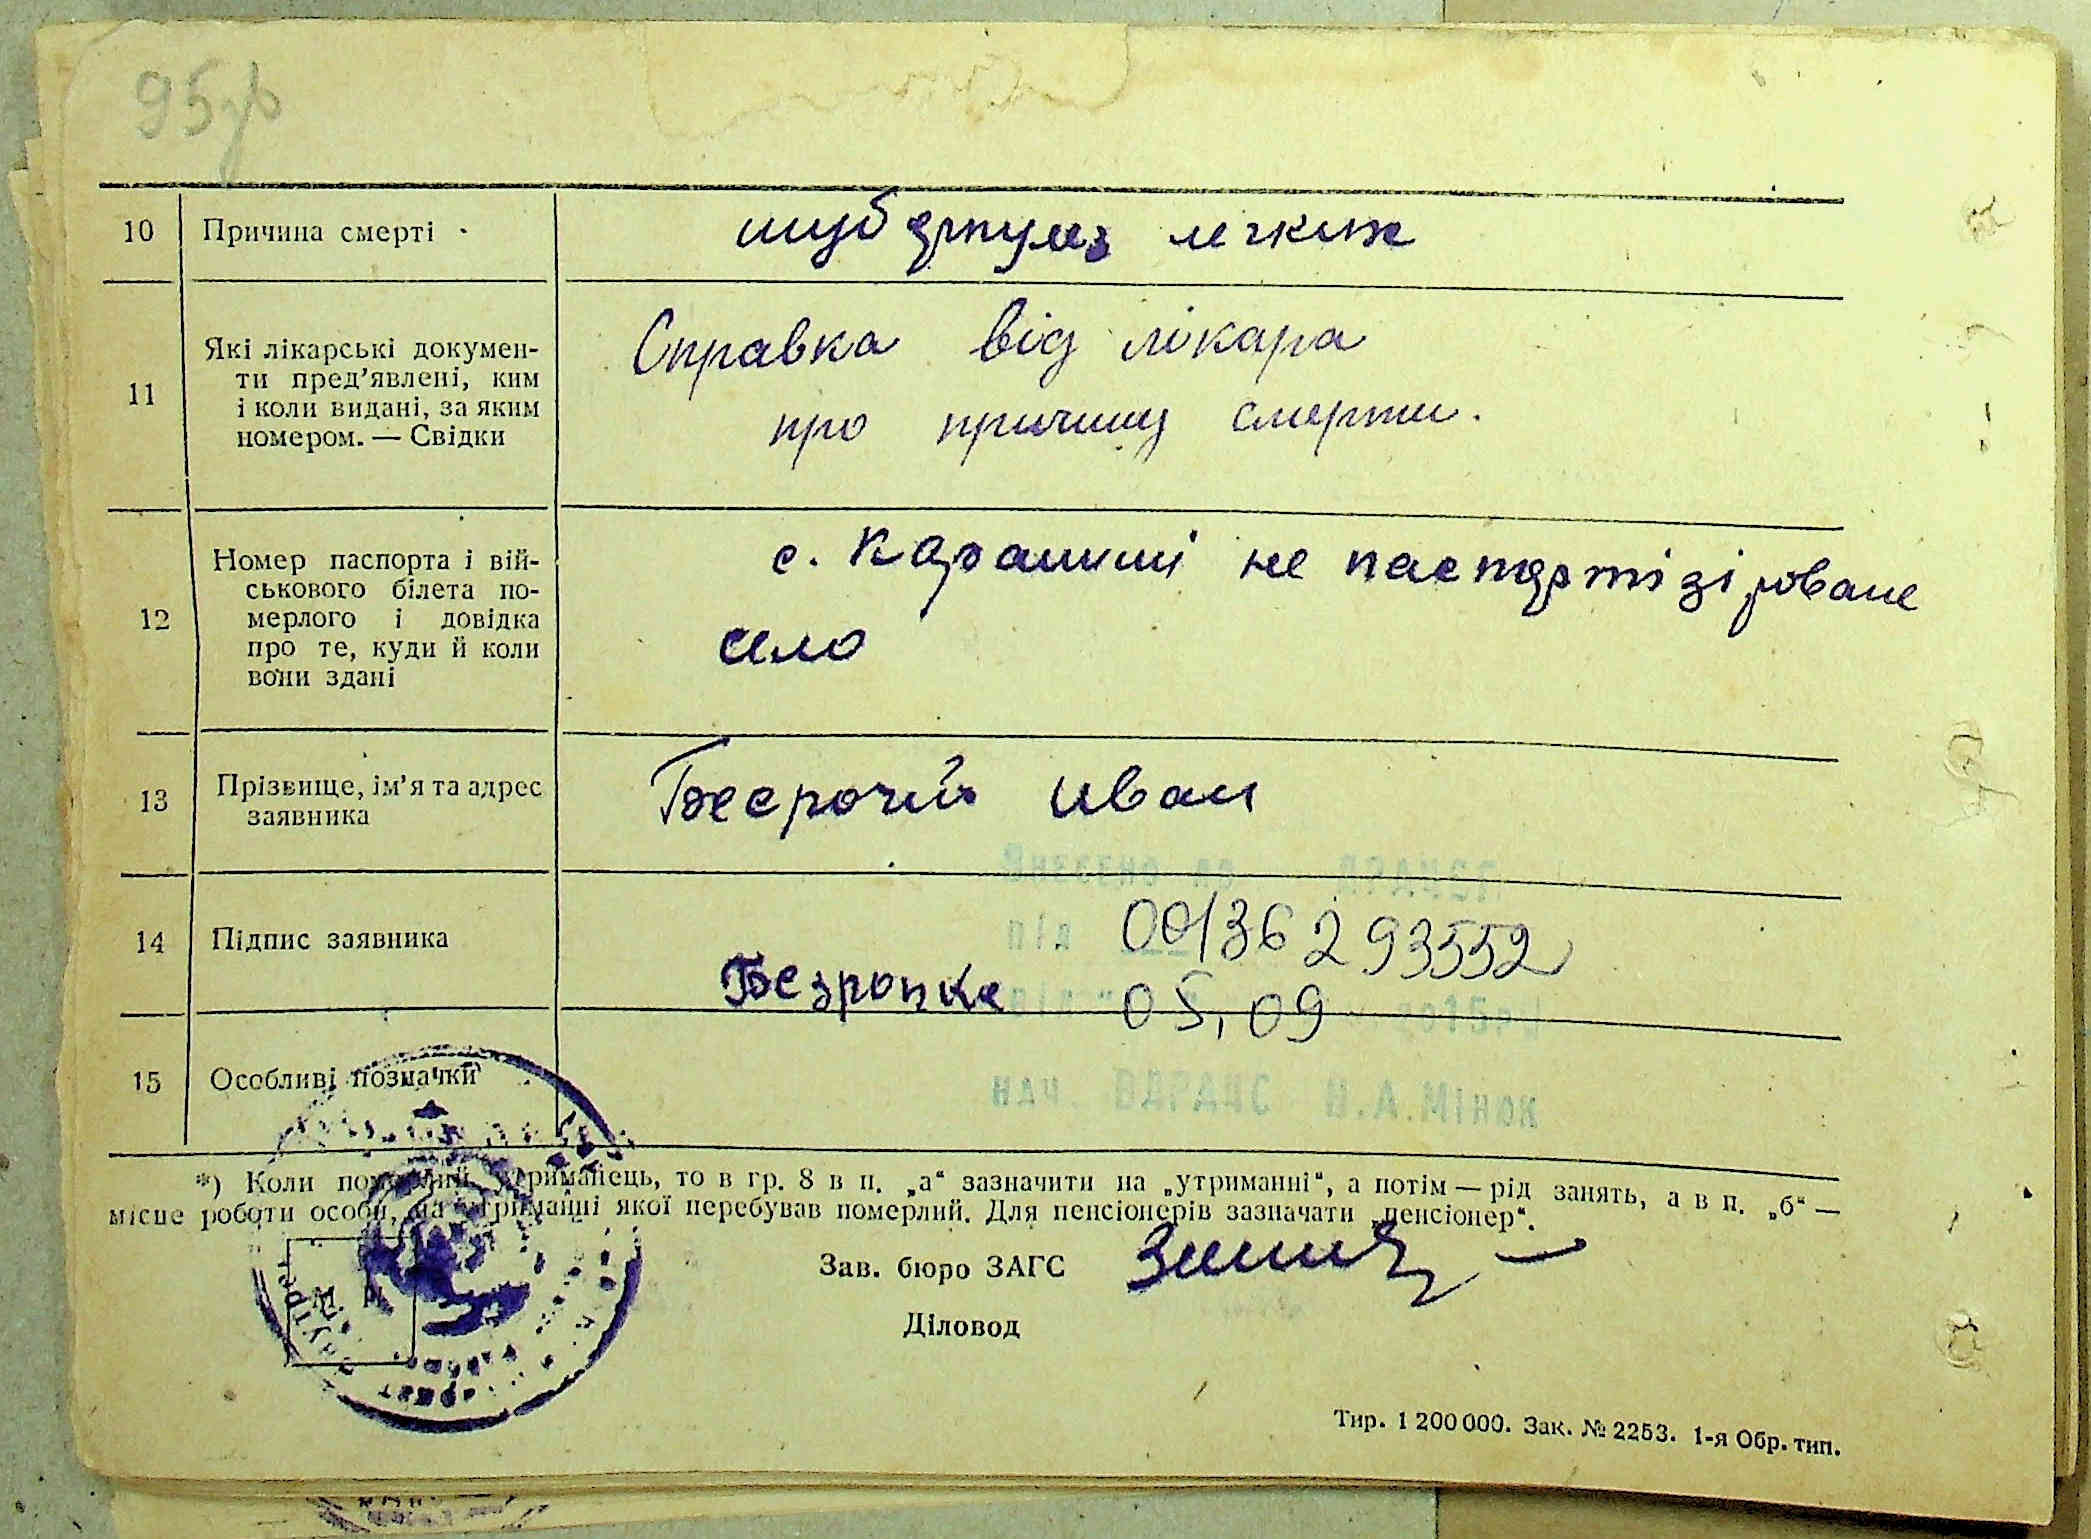 95зв
10 Причина смерті туберкульоз легких
11 Які лікарські докумен-
ти пред’явлені, ким
і коли видані, за яким
номером. — Свідки
Справка від лікара
про причину смерти.
12 Номер паспорта і вій-
ськового білета по-
мерлого і довідка
про те, куди й коли
вони здані
с. Карапиші не паспортізіроване
село
13 Прізвище, ім’я та адрес
заявника
Иван
14 Підпис заявника
під 00136293552
05,09
15 Особливі позначки
нач. ВДРАЦС Н.А.Мінюк
*) Коли померлий утриманець, то в гр. 8 в п. „а“ зазначити на „утриманні“, а потім — рід занять, а в п. „б“ —
місце роботи особи, на утриманні якої перебував померлий. Для пенсіонерів зазначати „пенсіонер“.
Зав. бюро ЗАГС
Діловод
Тир. 1 200 000. Зак. № 2253. 1-я Обр. тип.